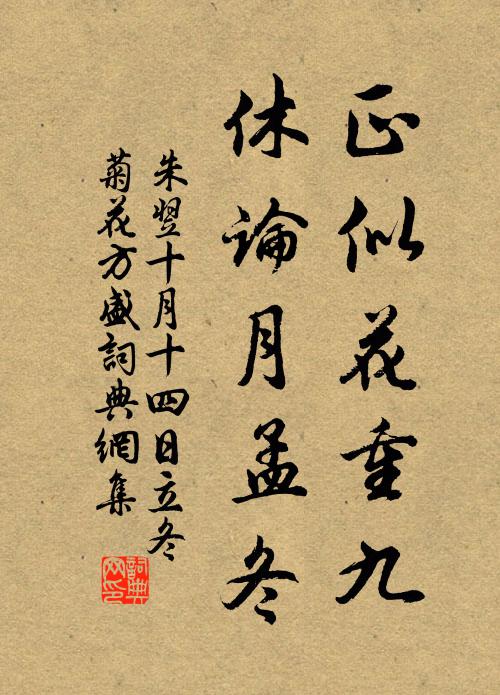 正似花重九
休論月孟冬
朱翌十月十四日立冬
菊花方盛詞典網集
詞典
网印